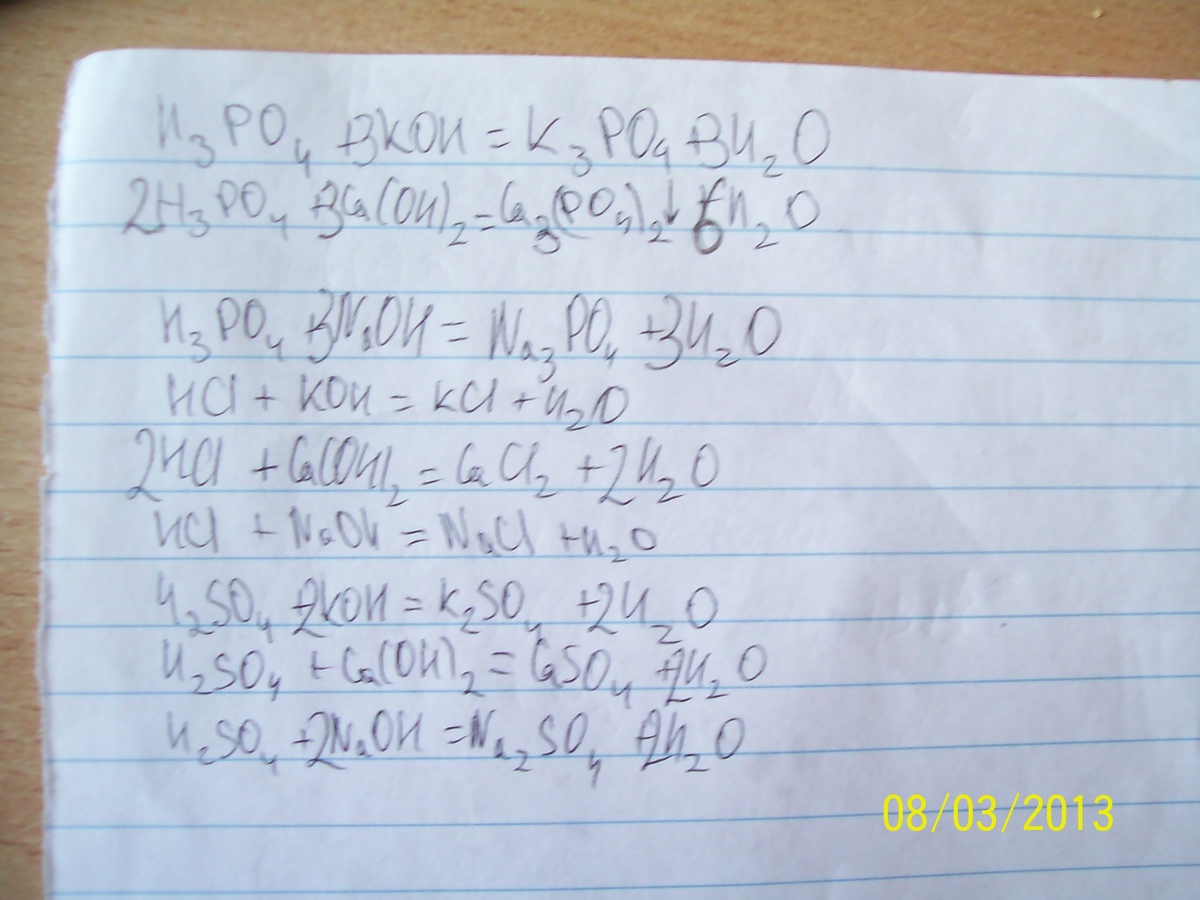 H₃PO₄ +3KOH = K₃PO₄ +3H₂O
2H₃PO₄ +3Ca(OH)₂ = Ca₃(PO₄)₂↓ +6H₂O
H₃PO₄ +3NaOH = Na₃PO₄ +3H₂O
HCl + KOH = KCl + H₂O
2HCl + Ca(OH)₂ = CaCl₂ +2H₂O
HCl + NaOH = NaCl + H₂O
H₂SO₄ +2KOH = K₂SO₄ +2H₂O
H₂SO₄ + Ca(OH)₂ = CaSO₄ +2H₂O
H₂SO₄ +2NaOH = Na₂SO₄ +2H₂O
08/03/2013